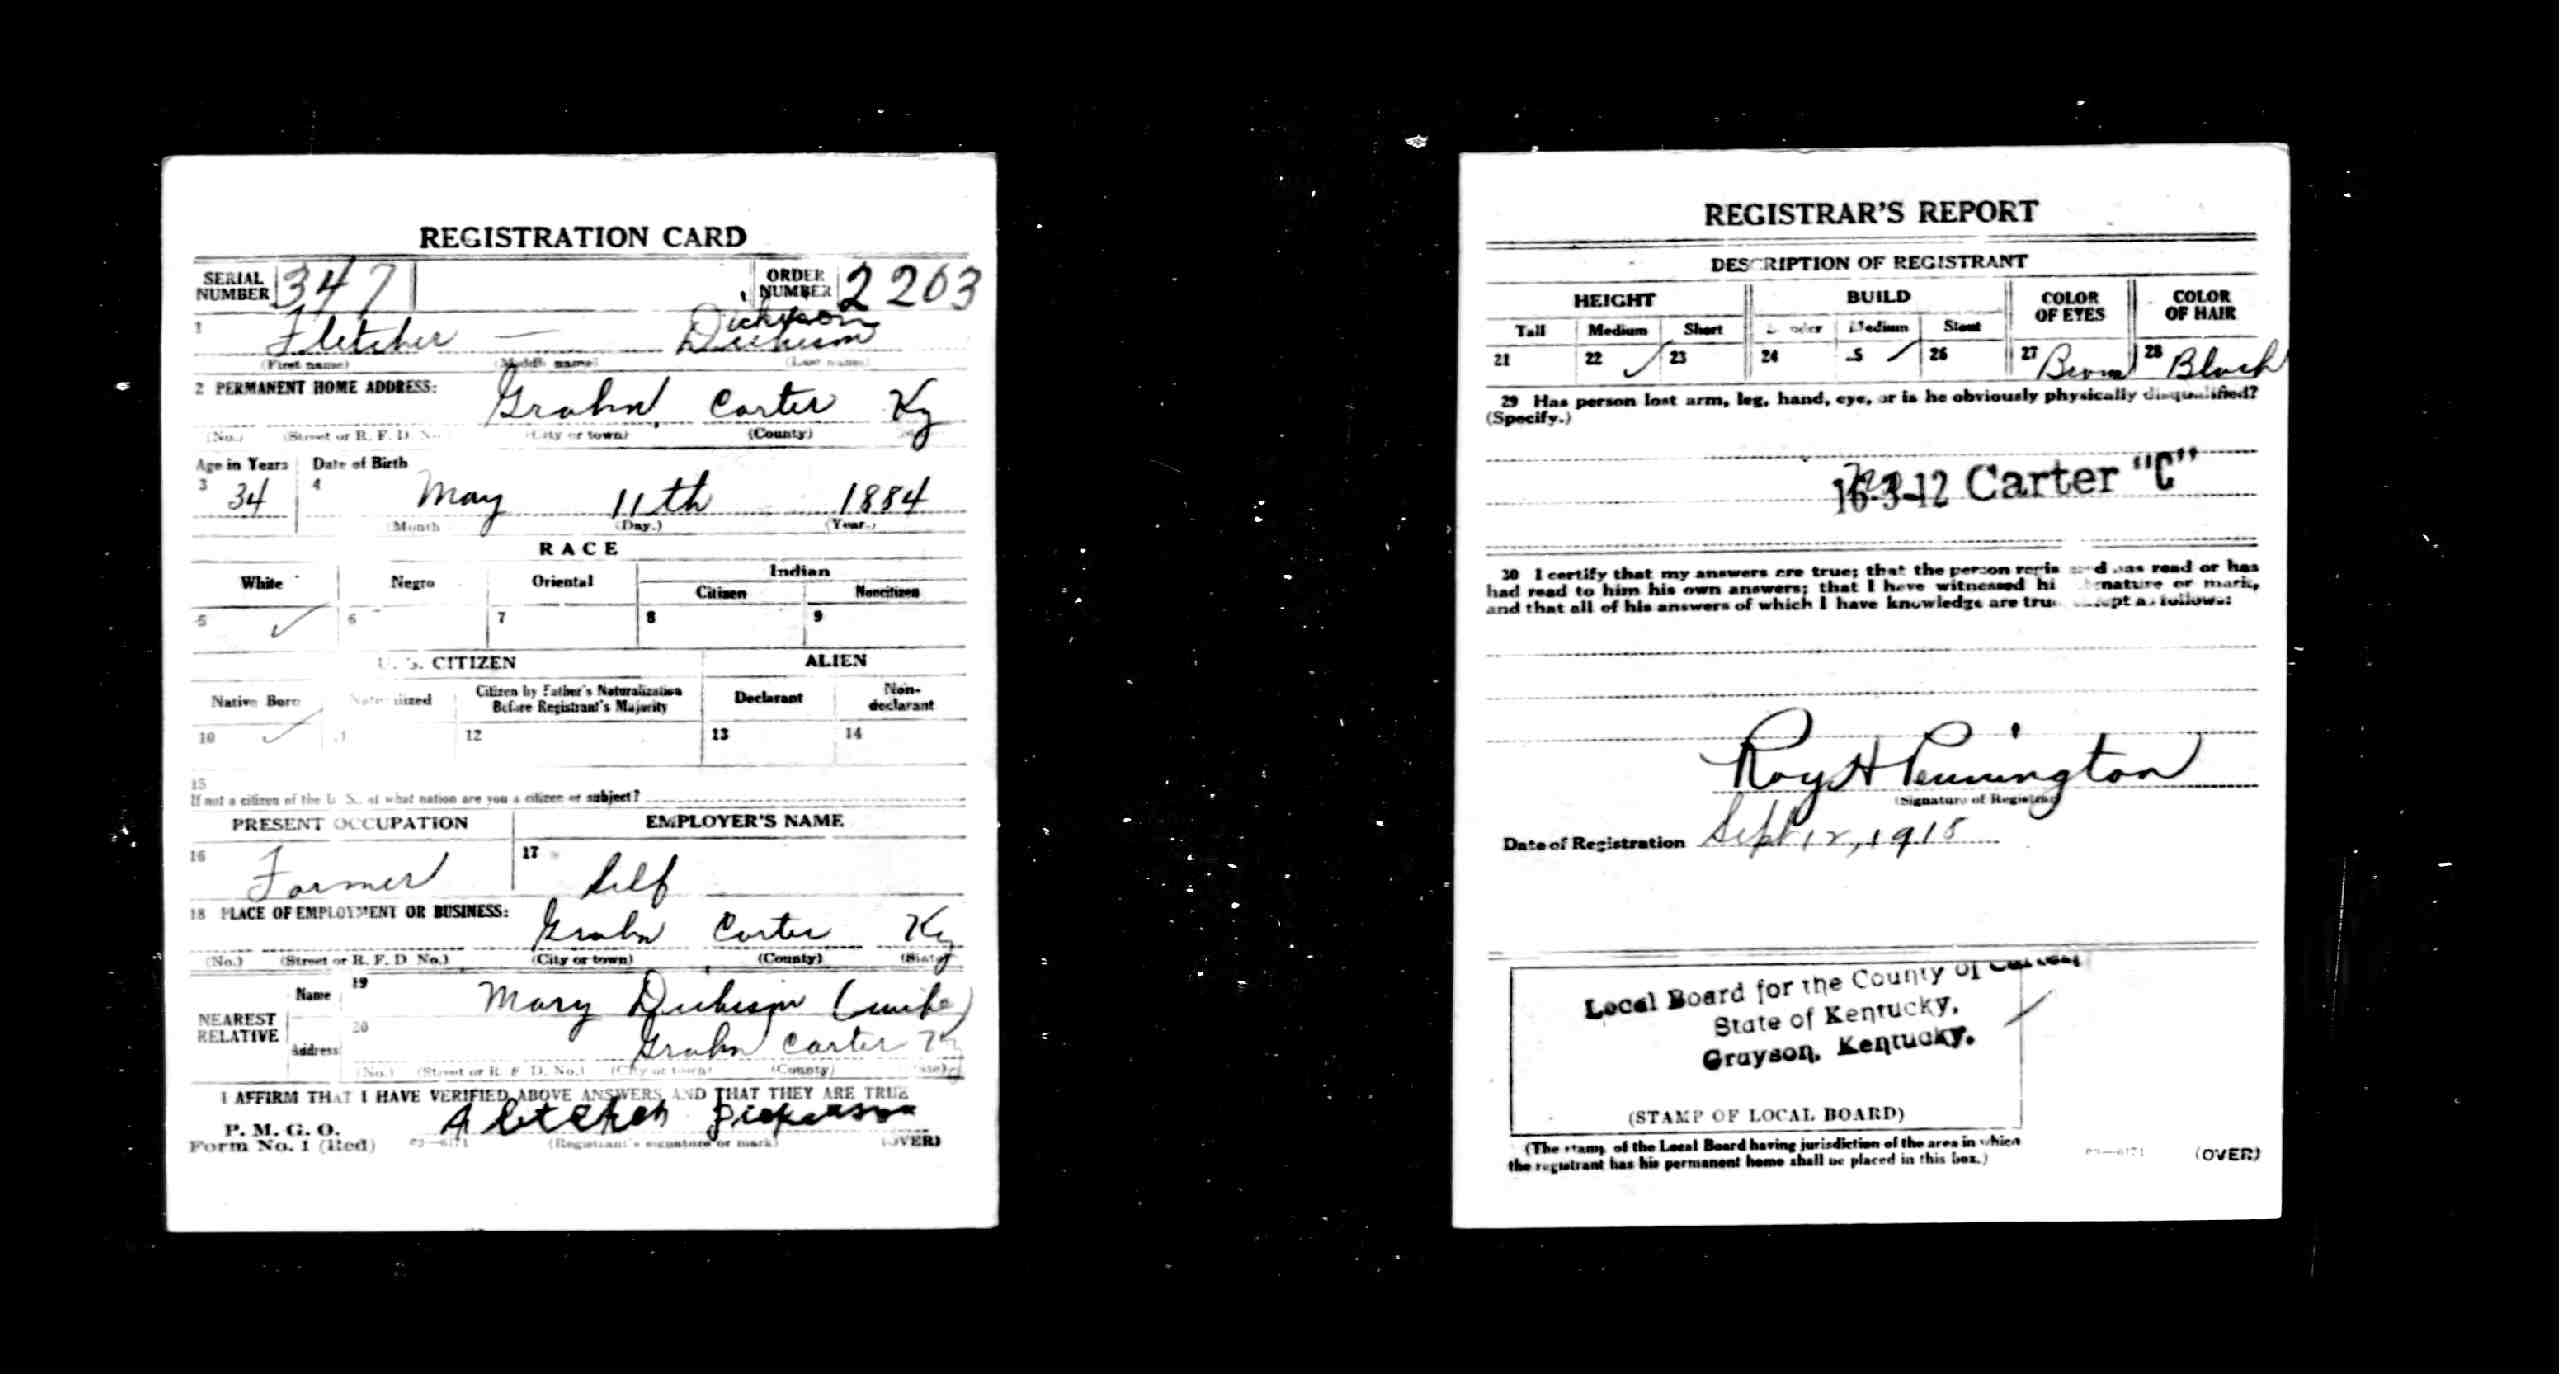 REGISTRATION CARD
SERIAL NUMBER 347 ORDER NUMBER 2203
Dickerson
1 Fletcher — Dickison
(First name) (Middle name) (Last name)
2 PERMANENT HOME ADDRESS:
Grahn Carter Ky
(No.) (Street or R. F. D. No.) (City or town) (County)
Age in Years Date of Birth
3 34 4 May 11th 1884
(Month (Day.) (Year.)
RACE
White Negro Oriental Indian
Citizen Noncitizen
5 ✓ 6 7 8 9
U. S. CITIZEN ALIEN
Native Born Naturalized Citizen by Father's Naturalization Before Registrant's Majority Declarant Non-declarant
10 ✓ 11 12 13 14
15
If not a citizen of the U. S., of what nation are you a citizen or subject?
PRESENT OCCUPATION EMPLOYER'S NAME
16 Farmer 17 Self
18 PLACE OF EMPLOYMENT OR BUSINESS:
Grahn Carter Ky
(No.) (Street or R. F. D. No.) (City or town) (County) (State)
NEAREST RELATIVE
Name 19 Mary Dickison (wife)
Address 20 Grahn Carter Ky
(No.) (Street or R. F. D. No.) (City or town) (County) (State)
I AFFIRM THAT I HAVE VERIFIED ABOVE ANSWERS AND THAT THEY ARE TRUE
P. M. G. O.
Form No. 1 (Red) 03—6171 Fletcher (Registrant's signature or mark) (OVER)
REGISTRAR'S REPORT
DESCRIPTION OF REGISTRANT
HEIGHT BUILD COLOR OF EYES COLOR OF HAIR
Tall Medium Short Slender Medium Stout
21 22 ✓ 23 24 25 ✓ 26 27 Brown 28 Black
29 Has person lost arm, leg, hand, eye, or is he obviously physically disqualified?
(Specify.)
16-3-12 Carter "C"
30 I certify that my answers are true; that the person registered has read or has
had read to him his own answers; that I have witnessed his signature or mark,
and that all of his answers of which I have knowledge are true, except as follows:
Roy H Pennington
(Signature of Registrar)
Date of Registration Sept 12, 1918
Local Board for the County of Carter,
State of Kentucky,
Grayson, Kentucky.
(STAMP OF LOCAL BOARD)
(The stamp of the Local Board having jurisdiction of the area in which
the registrant has his permanent home shall be placed in this box.)
03—6171 (OVER)